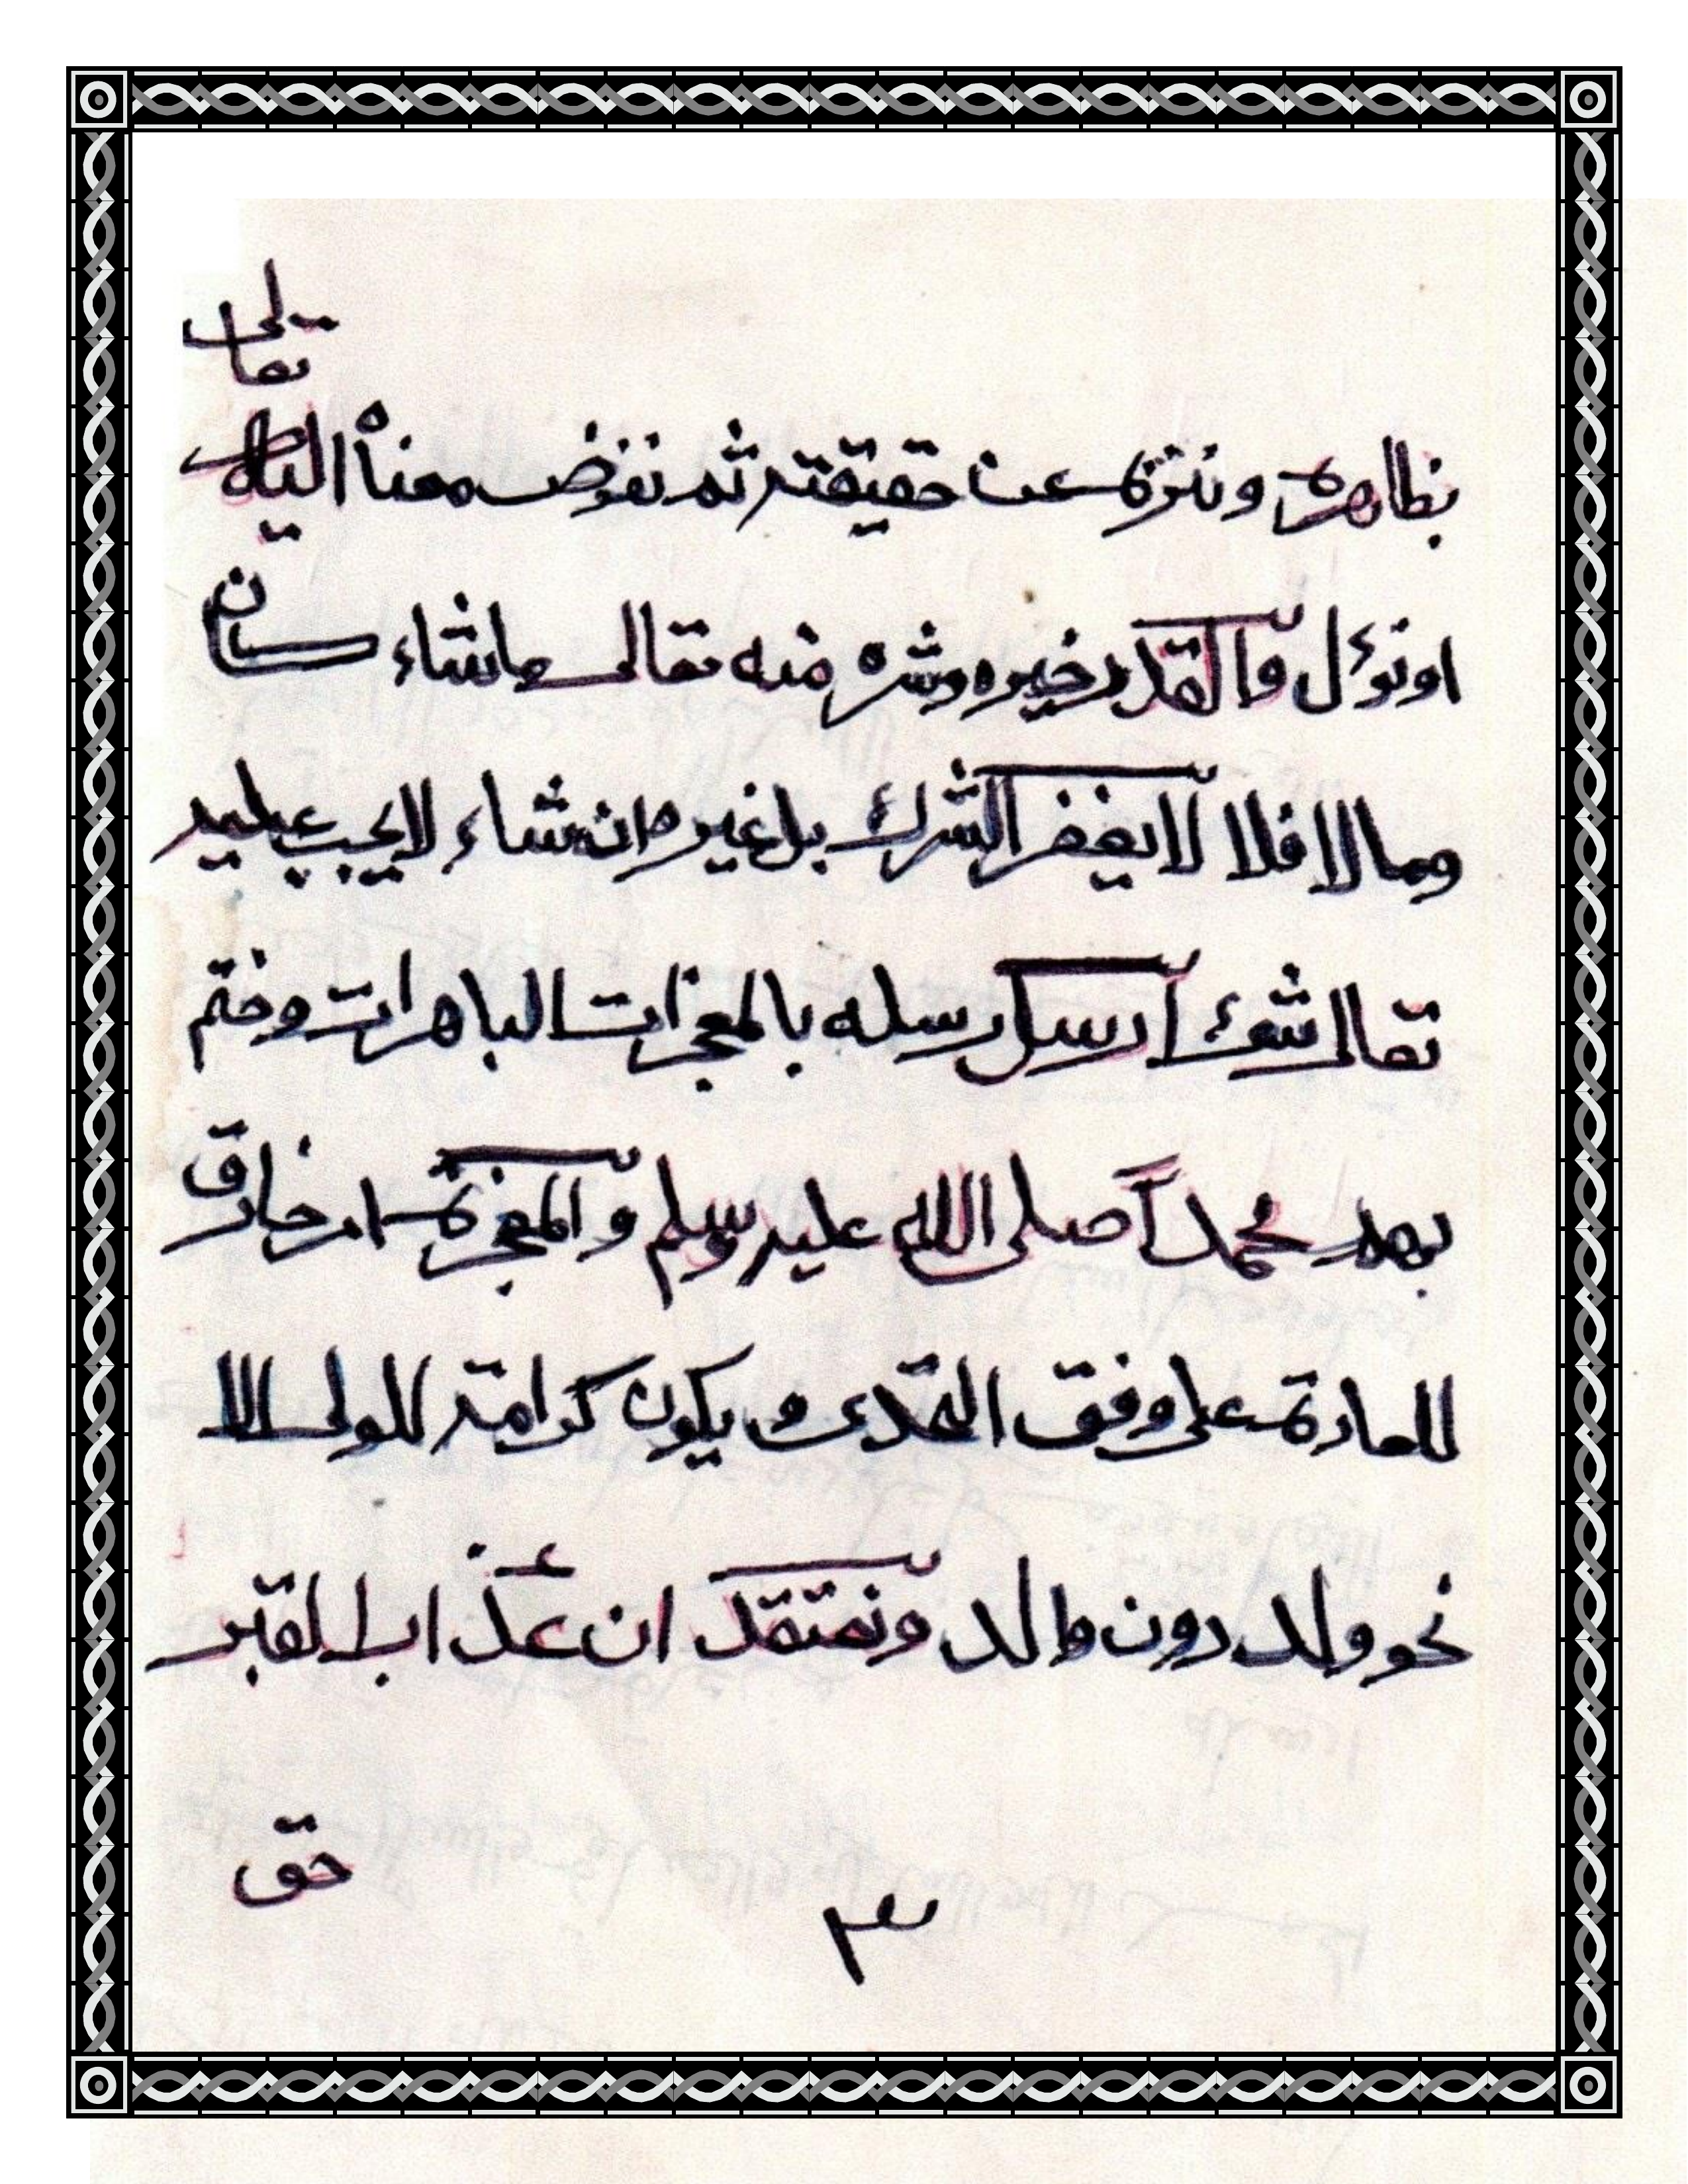 تعالى
بظاهره وننزه عن حقيقته ثم نفوض معناه اليه
او نوئل والقدر خيره وشره منه تعالى ما شاء كان
وما لا فلا لا يغفر الشرك بل غيره ان شاء لا يجب عليه
تعالى شيء ارسل رسله بالمعجزات الباهرات وختم
بهم محمداً صلى الله عليه وسلم والمعجزة امر خارق
للعادة على وفق التحدي ويكون كرامة للولي الا
نحو ولد دون والد ونعتقد ان عذاب القبر
حق
٣